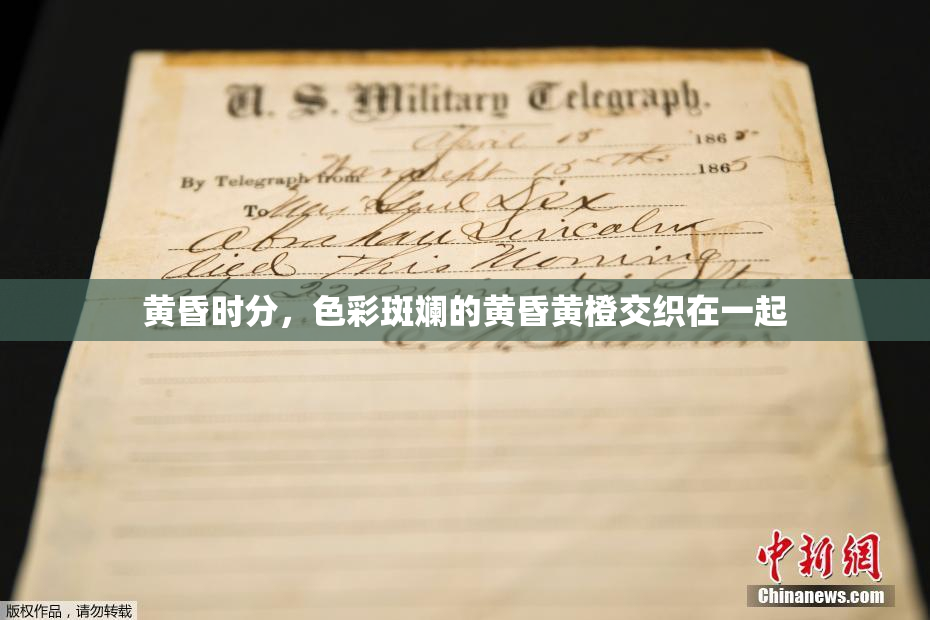 U. S. Military Telegraph.
April 15 1865
By Telegraph from War Dept 15th 1865
To Maj Genl Dix
Abraham Lincoln
died This Morning
at 22 minutes after
黄昏时分，色彩斑斓的黄昏黄橙交织在一起
E. M. Stanton
中新网
Chinanews.com
版权作品，请勿转载